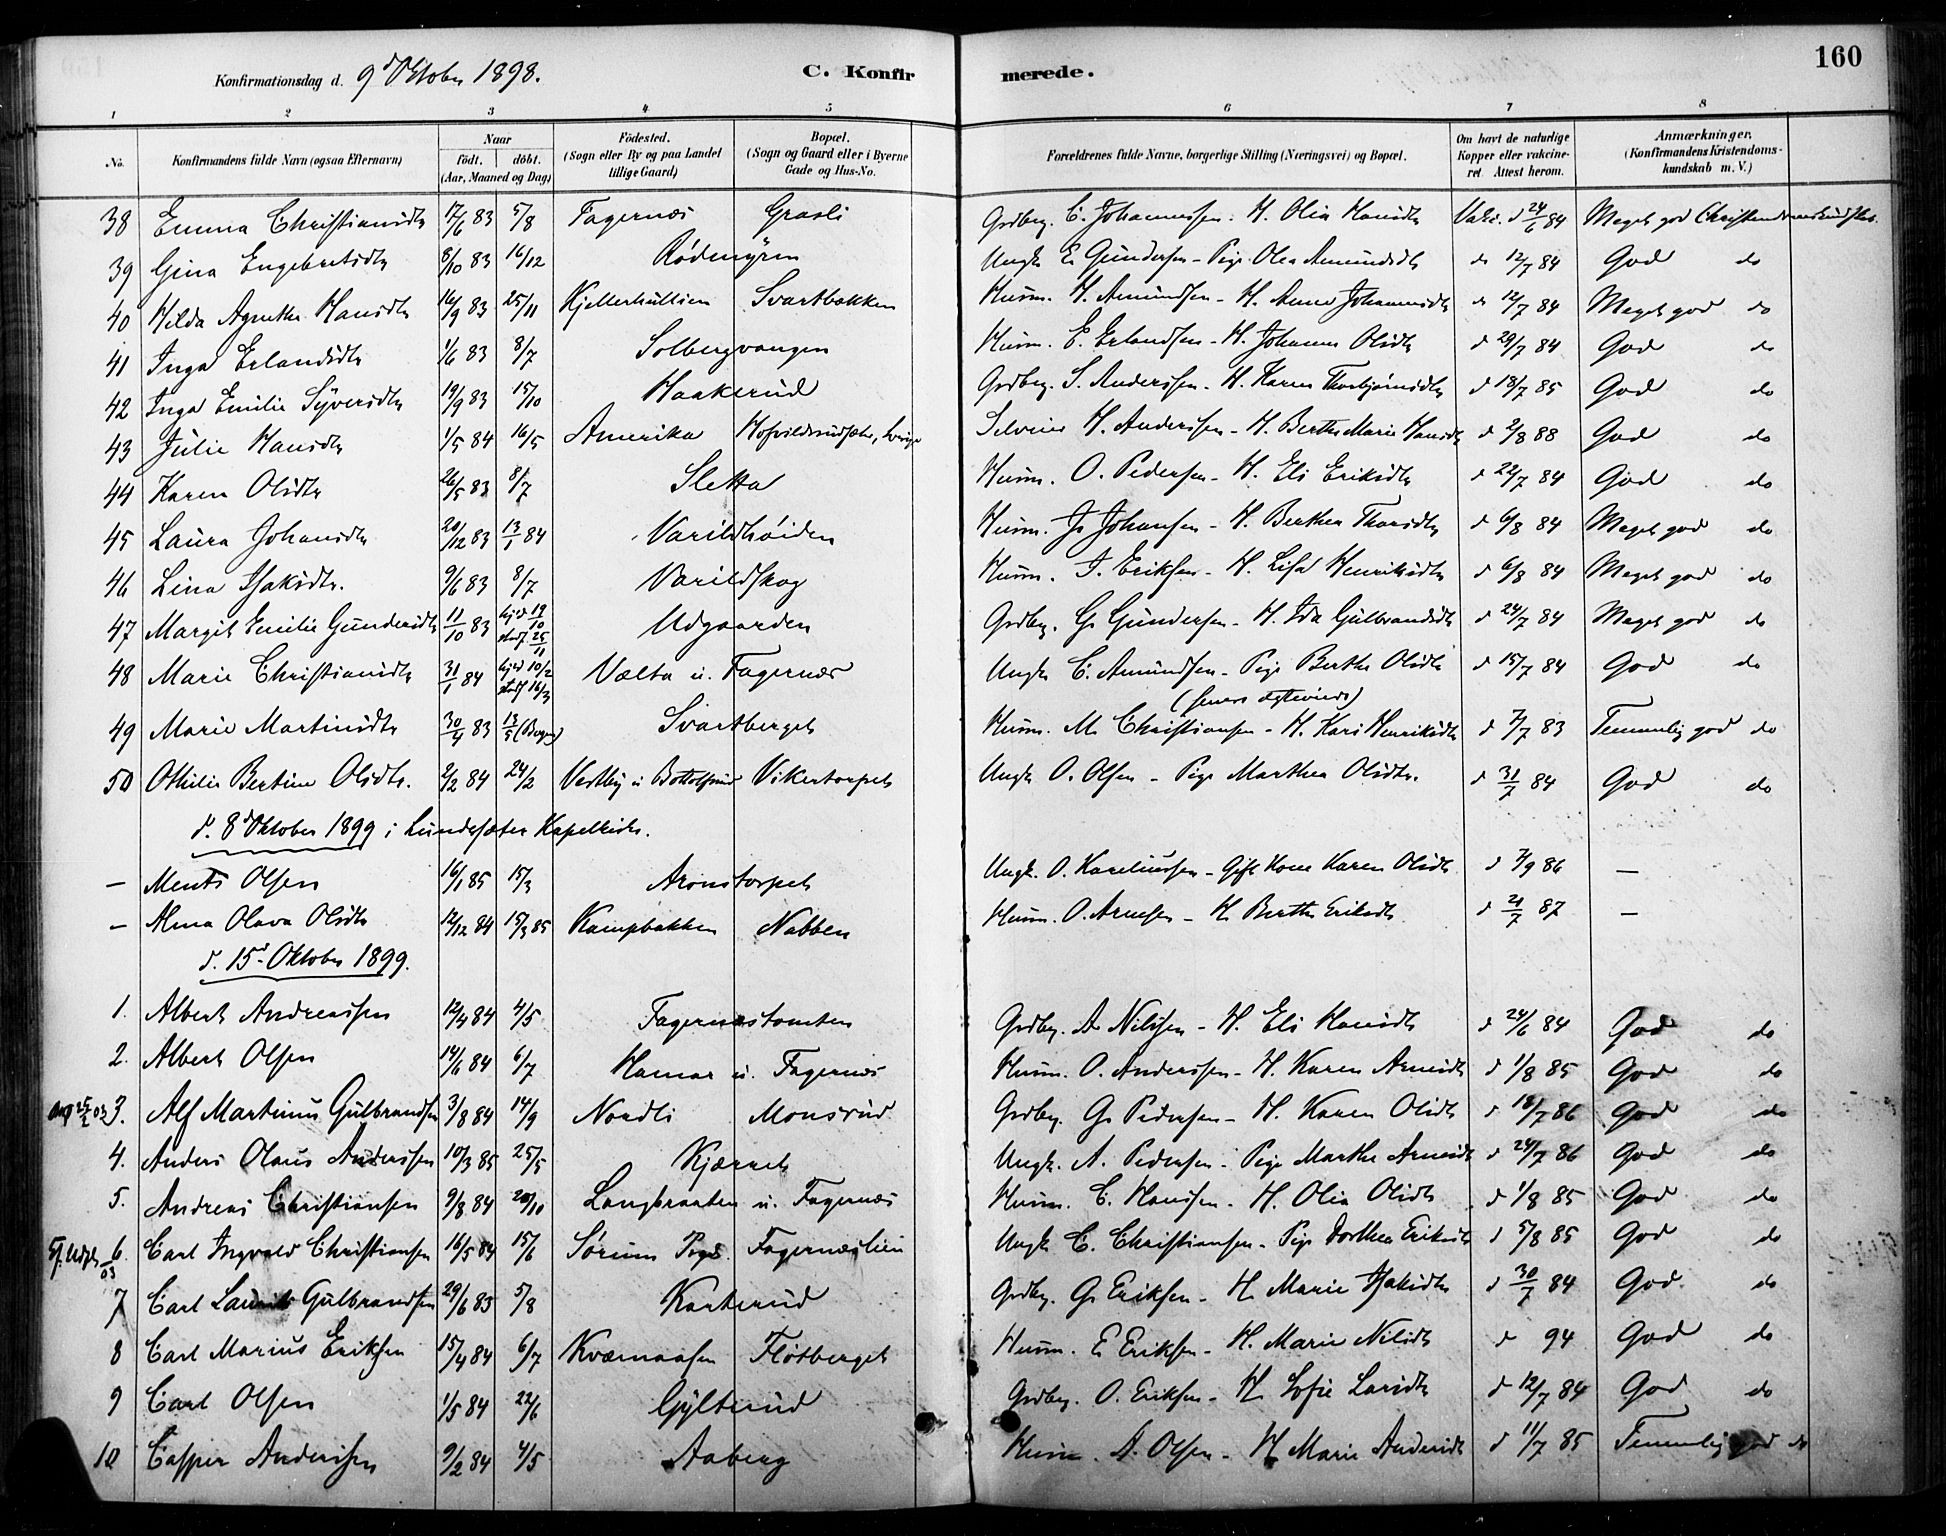 160
Konfirmationsdag d. 9d Oktober 1898. C. Konfirmerede.
1 2 3 4 5 6 7 8
No. Konfirmandens fulde Navn (ogsaa Efternavn) Naar födt. döbt. (Aar, Maaned og Dag) Födested. (Sogn eller By og paa Landet tillige Gaard) Bopæl. (Sogn og Gaard eller i Byerne Gade og Hus-No. Forældrenes fulde Navne, borgerlige Stilling (Næringsvei) og Bopæl. Om havt de naturlige Kopper eller vakcineret. Attest herom. Anmærkninger. (Konfirmandens Kristendomskundskab m. V.)
38 Emma Christiansdtr 17/6 83 5/8 Fagernæs Grasli Grdbrg. C. Johannessen - H. Olia Hansdtr Vakc. d 24/6 84 Meget god Christendomskundskab.
39 Gina Engebretsdtr 8/10 83 16/12 Rødmyren Ungk. E. Gundersen - Pige Olea Amundsdtr d 12/7 84 God do
40 Hilda Agnethe Hansdtr 16/9 83 25/11 Kjellerhullien Svartbakken Husm. H. Amundsen - H. Anne Johannesdtr d 12/7 84 Meget god do
41 Inga Erlandsdtr 1/6 83 8/7 Solbergvangen Husm. E. Erlandsen - H. Johanne Olsdtr d 29/7 84 God do
42 Inga Emilie Syversdtr 19/9 83 15/10 Haakerud Grdbrg. S. Anderssen - H. Karen Thorbjørnsdtr d 18/7 85 God do
43 Julie Hansdtr 1/5 84 16/5 Amerika Selveier H. Anderssen - H. Berthe Marie Hansdtr d 2/8 88 God do
44 Karen Olsdtr 26/5 83 8/7 Sletta Husm. O. Pedersen - H. Eli Eriksdtr d 22/7 84 God do
45 Laura Johansdtr 20/12 83 13/1 84 Varildhøiden Husm. J. Johansen - H. Berthea Thorsdtr d 6/8 84 Meget god do
46 Lina Isaksdtr. 9/6 83 8/7 Varildskog Husm. I. Eriksen - H. Lisa Henriksdtr d 6/8 84 Meget god do
47 Margit Emilie Gundersdtr 11/10 83 hjd 19/10 stadf 25/11 Udgaarden Grdbrg. G. Gundersen - H. Ida Gulbrandsdtr d 24/7 84 Meget god do
48 Marie Christiansdtr 31/1 84 hjd 10/2 stadf 16/3 Vælta u. Fagernæs Ungk. C. Amundsen - Pige Berthe Olsdtr d 15/7 84 God do
49 Marie Martinsdtr 30/4 83 13/5 Svartberget Husm. M. Christiansen - H. Kari Henriksdtr d 7/7 83 Temmelig god do
50 Othilie Bertine Olsdtr. 2/2 84 24/2 Vestby u Bottolfsrud Vikertorpet Ungk. O. Olsen - Pige Marthea Olsdtr. d 31/7 84 God do
d. 8d Oktober 1899 i Lundersæter Kapelkirke.
- Ments Olsen 16/1 85 15/3 Aronstorpet Ungk. O. Kareliussen - Gift Kone Karen Olsdtr d 7/9 86 -
- Alma Olava Olsdtr 12/12 84 15/3 85 Kampbakken Nabben Husm. O. Arnesen - H. Berthe Eriksdtr d 21/7 87 -
d. 15d Oktober 1899.
1. Albert Andreassen 12/4 84 4/5 Fagernæstomten Grdbrg. A. Nilssen - H. Eli Hansdtr d 24/6 84 God do
2. Albert Olsen 14/6 84 6/7 Hamar u. Fagernæs Husm. O. Anderssen - H. Karen Arnesdtr d 1/8 85 God do
3. Alf Martinus Gulbrandsen 3/8 84 14/9 Nordli Monsrud Grdbrg. G. Pedersen - H. Karen Olsdtr d 18/7 86 God do
4. Anders Olaus Anderssen 10/3 85 25/5 Kjærret Ungk. A. Pedersen - Pige Marthe Arnesdtr d 24/7 86 God do
5. Andreas Christiansen 9/8 84 20/10 Langbraaten u. Fagernæs Husm. C. Hanssen - H. Olia Olsdtr d 1/8 85 God do
6. Carl Ingvald Christiansen 16/5 84 15/6 Sørum Fagernæslien Ungk. C. Christiansen - Pige Dorthea Eriksdtr d 5/8 85 God do
7 Carl Laurits Gulbrandsen 29/6 83 5/8 Karterud Grdbrg. G. Eriksen - H. Marie Isaksdtr d 30/7 84 God do
8 Carl Marius Eriksen 15/4 84 6/7 Kværnaasen Fløtberget Husm. E. Eriksen - H. Marie Nilsdtr d 94 God do
9 Carl Olsen 1/5 84 22/6 Gylterud Grdbrg. O. Eriksen - H. Sofie Larsdtr d 12/7 84 God do
10 Casper Anderssen 9/2 84 4/5 Aaberg Husm. A. Olsen - H. Marie Andersdtr d 11/7 85 Temmelig god do